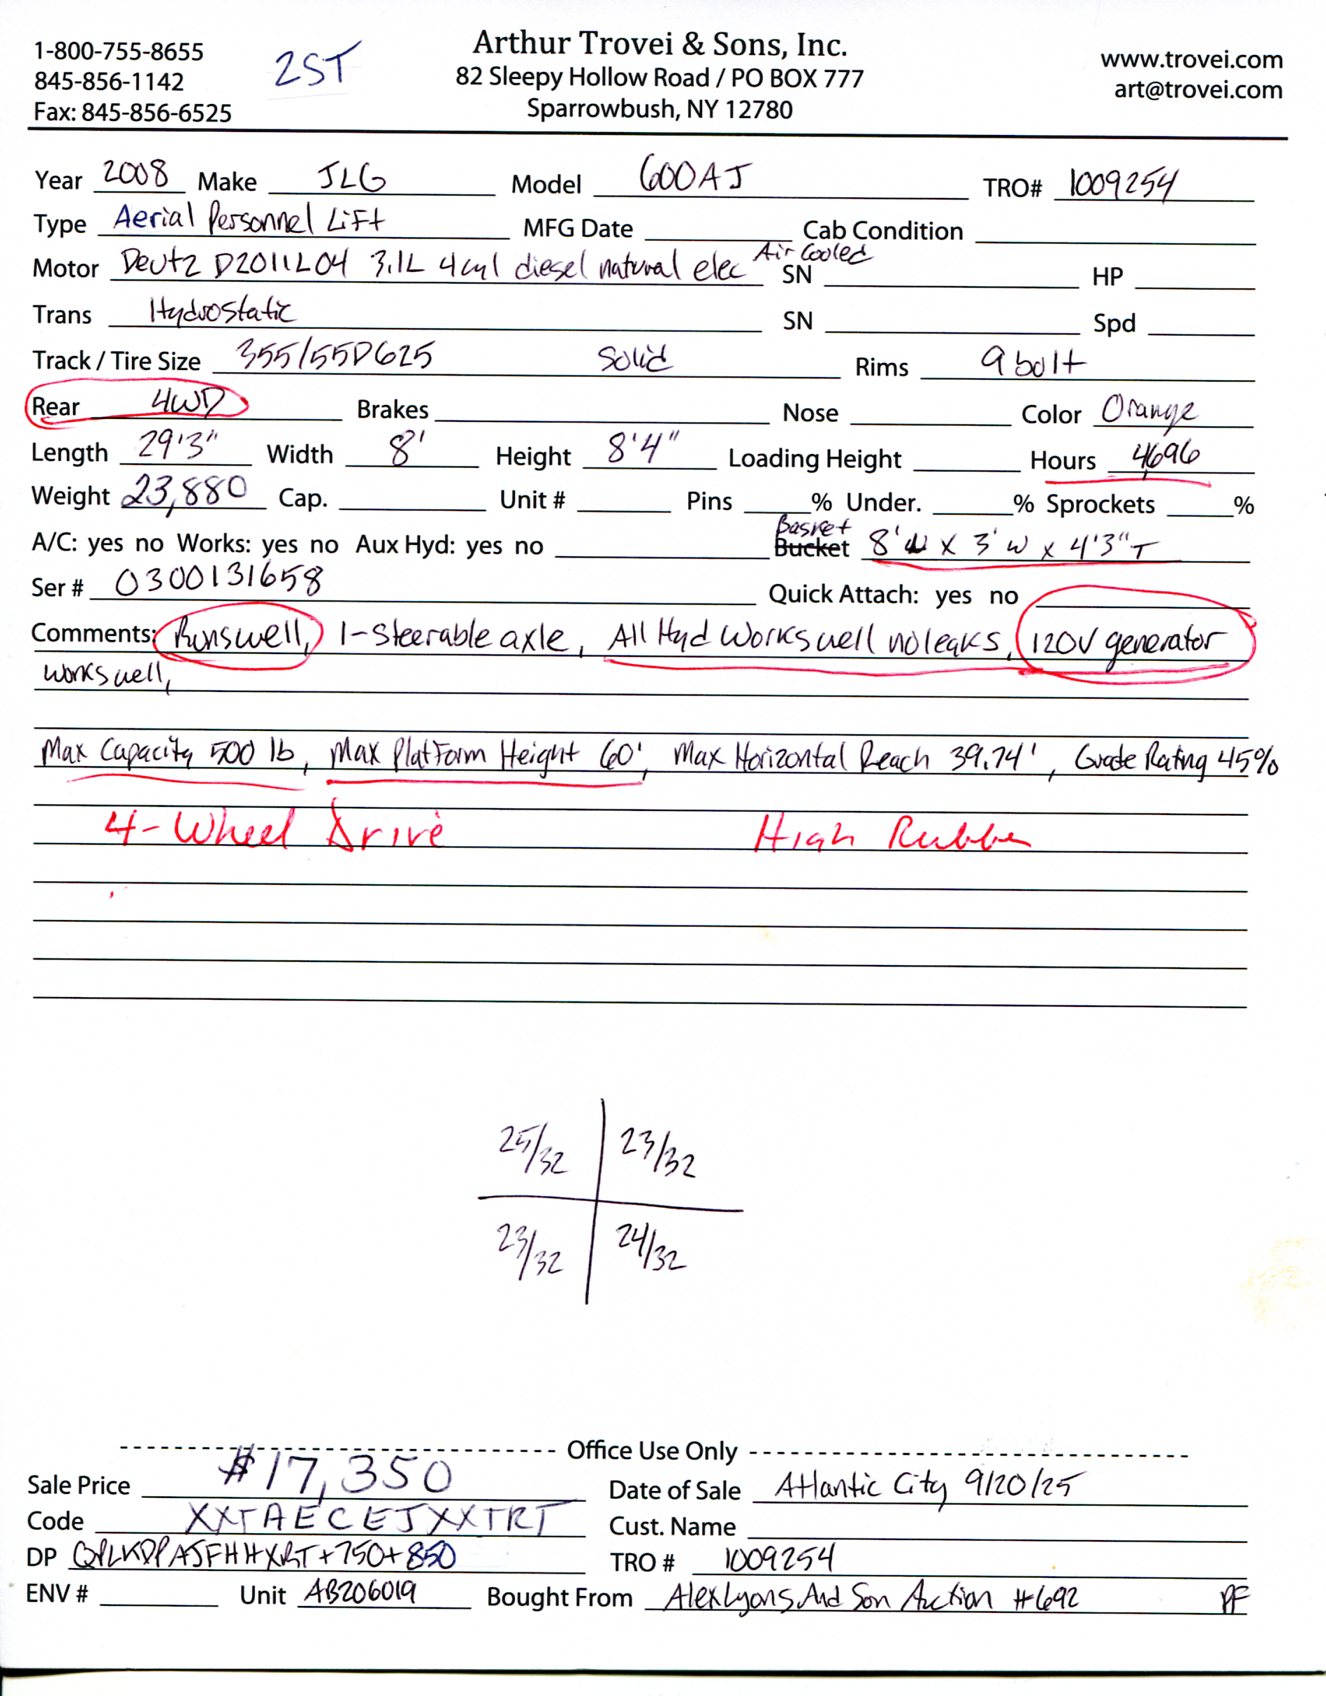 1-800-755-8655
845-856-1142
Fax: 845-856-6525
2ST
Arthur Trovei & Sons, Inc.
82 Sleepy Hollow Road / PO BOX 777
Sparrowbush, NY 12780
www.trovei.com
art@trovei.com
Year 2008 Make JLG Model 600AJ TRO# 1009254
Type Aerial Personnel Lift MFG Date Cab Condition
Motor Deutz D2011L04 3.1L 4cyl diesel natural elec Air Cooled SN HP
Trans Hydrostatic SN Spd
Track / Tire Size 355/55D625 Solid Rims 9 bolt
Rear 4WD Brakes Nose Color Orange
Length 29'3" Width 8' Height 8'4" Loading Height Hours 4696
Weight 23,880 Cap. Unit # Pins % Under. % Sprockets %
A/C: yes no Works: yes no Aux Hyd: yes no Basket Bucket 8' x 3' W x 4'3" T
Ser # 0300131658 Quick Attach: yes no
Comments: Runs well, 1-Steerable axle, All Hyd Works well no leaks, 120V generator
works well,
Max Capacity 500 lb, Max Platform Height 60', Max Horizontal Reach 39.74', Grade Rating 45%
4-Wheel Drive High Rubber
25/32 23/32
23/32 24/32
Office Use Only
Sale Price $17,350 Date of Sale Atlantic City 9/20/25
Code XXTAECEJXXTRT Cust. Name
DP QPLKDPAJFHHXRT+750+850 TRO # 1009254
ENV # Unit AB206019 Bought From Alex Lyons And Son Auction #692 PF